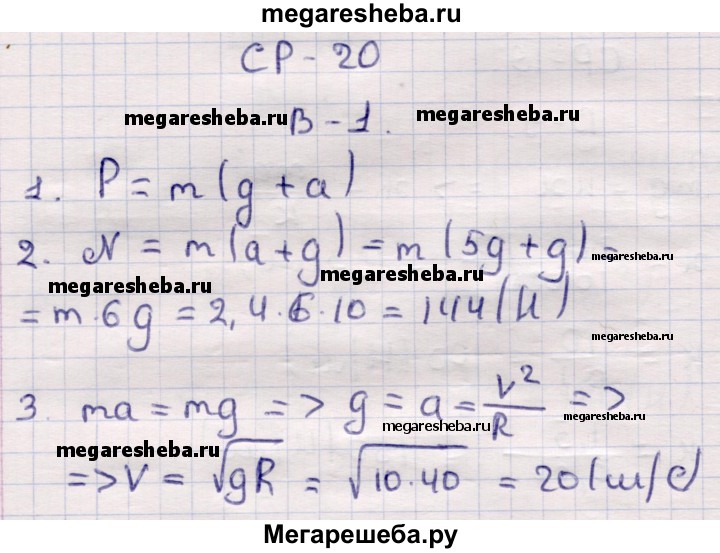 megaresheba.ru
СР - 20
megaresheba.ru В - 1. megaresheba.ru
1. P = m(g + a)
2. N = m(a + g) = m(5g + g) = megaresheba.ru
megaresheba.ru megaresheba.ru
= m · 6g = 2,4 · 6 · 10 = 144 (Н)
megaresheba.ru
3. ma = mg => g = a = V²/R =>
megaresheba.ru
megaresheba.ru
=> V = √gR = √10·40 = 20 (м/с)
megaresheba.ru
Мегарешеба.ру